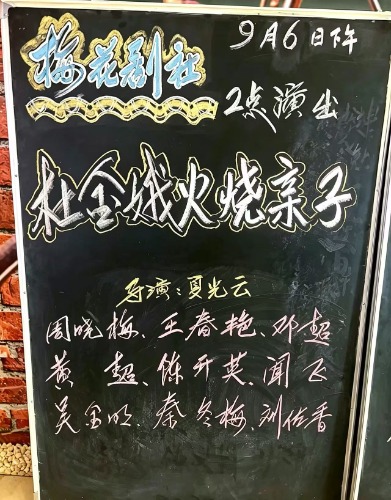 梅花剧社
9月6日下午
2点演出
杜金娥火烧亲子
导演：夏光云
周晓梅、王春艳、邓超
黄超、陈开英、闻飞
吴金明、秦冬梅、刘佐香